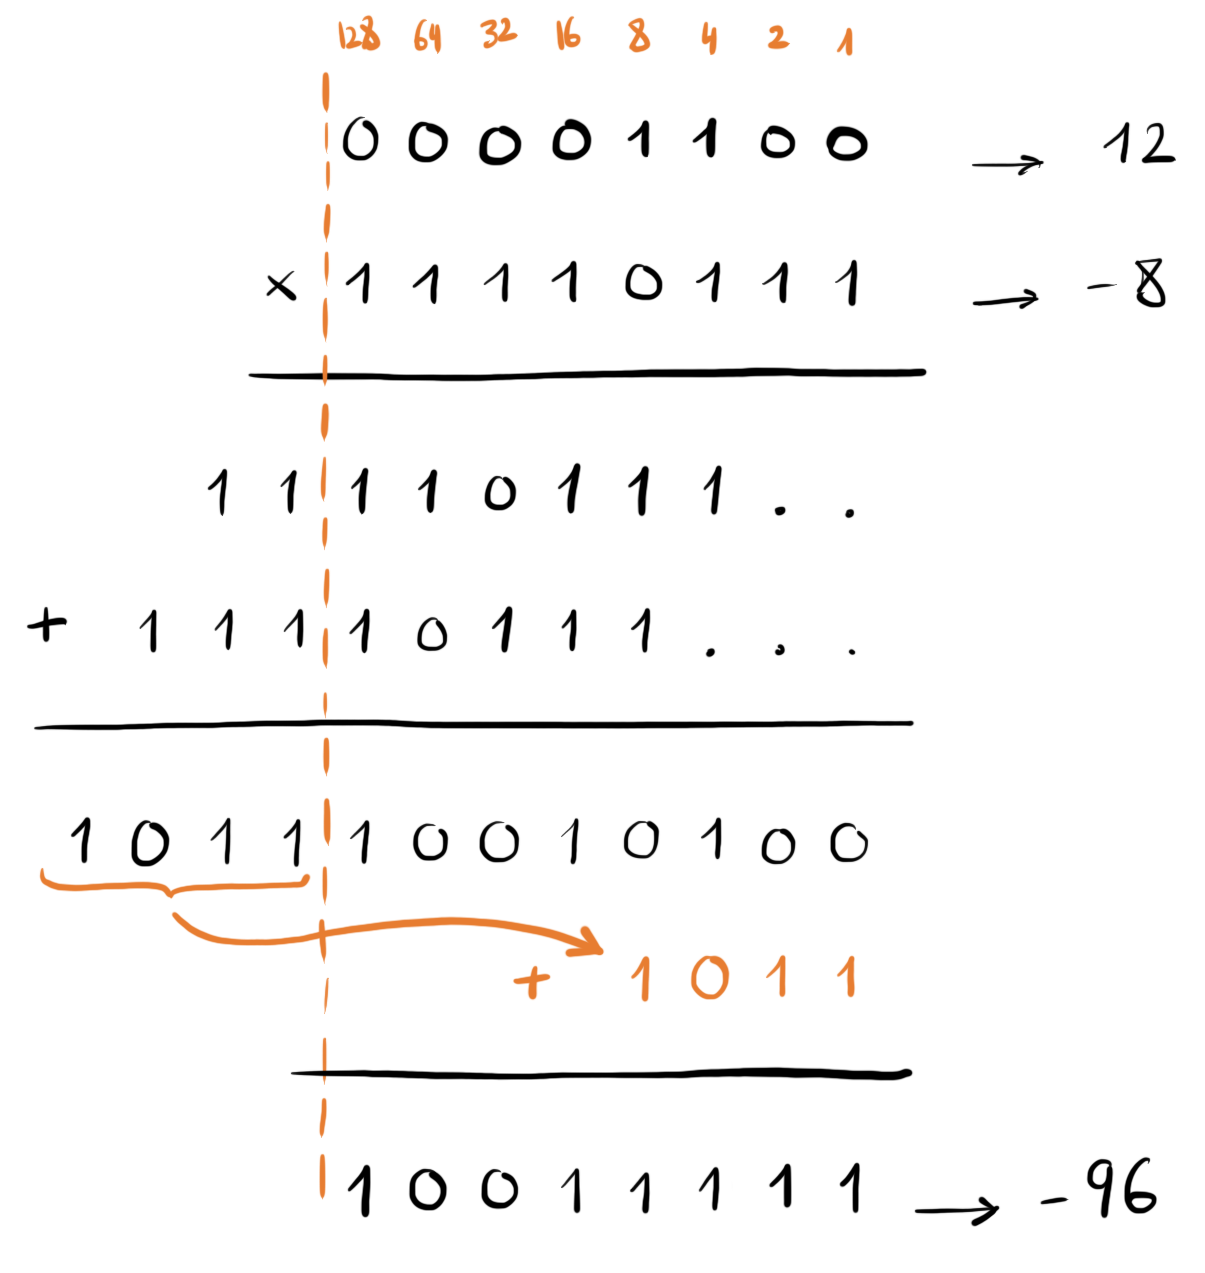 128 64 32 16 8 4 2 1
0 0 0 0 1 1 0 0 → 12
× 1 1 1 1 0 1 1 1 → -8
1 1 1 1 0 1 1 1 . .
+ 1 1 1 1 0 1 1 1 . . .
1 0 1 1 1 0 0 1 0 1 0 0
+ 1 0 1 1
1 0 0 1 1 1 1 1 → -96